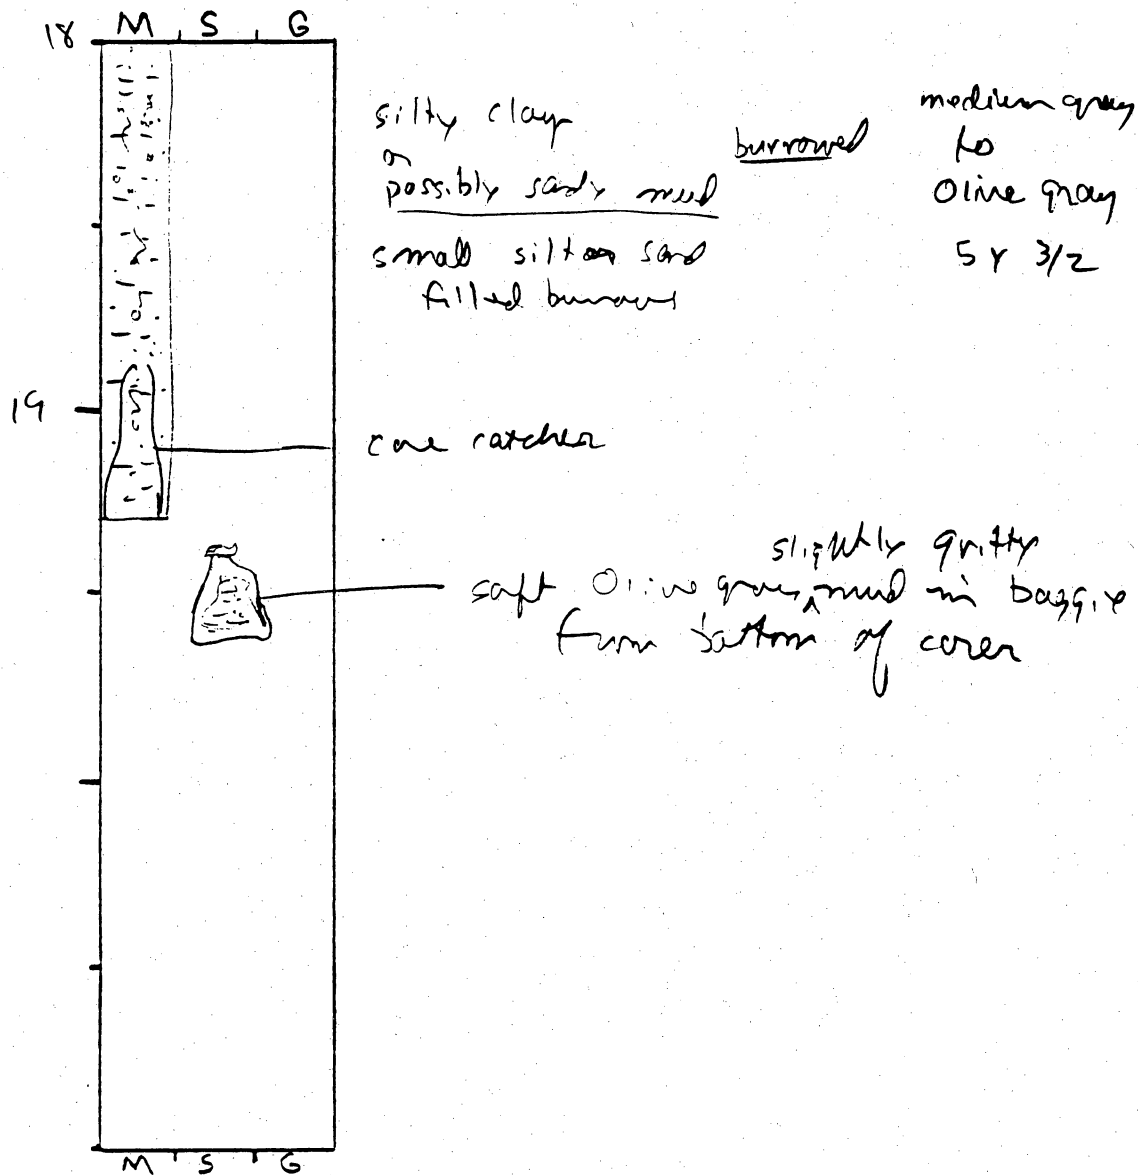 18 M S G
silty clay
or
possibly sandy mud
burrowed
medium gray
to
Olive gray
5Y 3/2
small silt or sand
filled burrows
19
core catcher
slightly gritty
soft Olive gray ^ mud in baggie
from bottom of corer
M S G